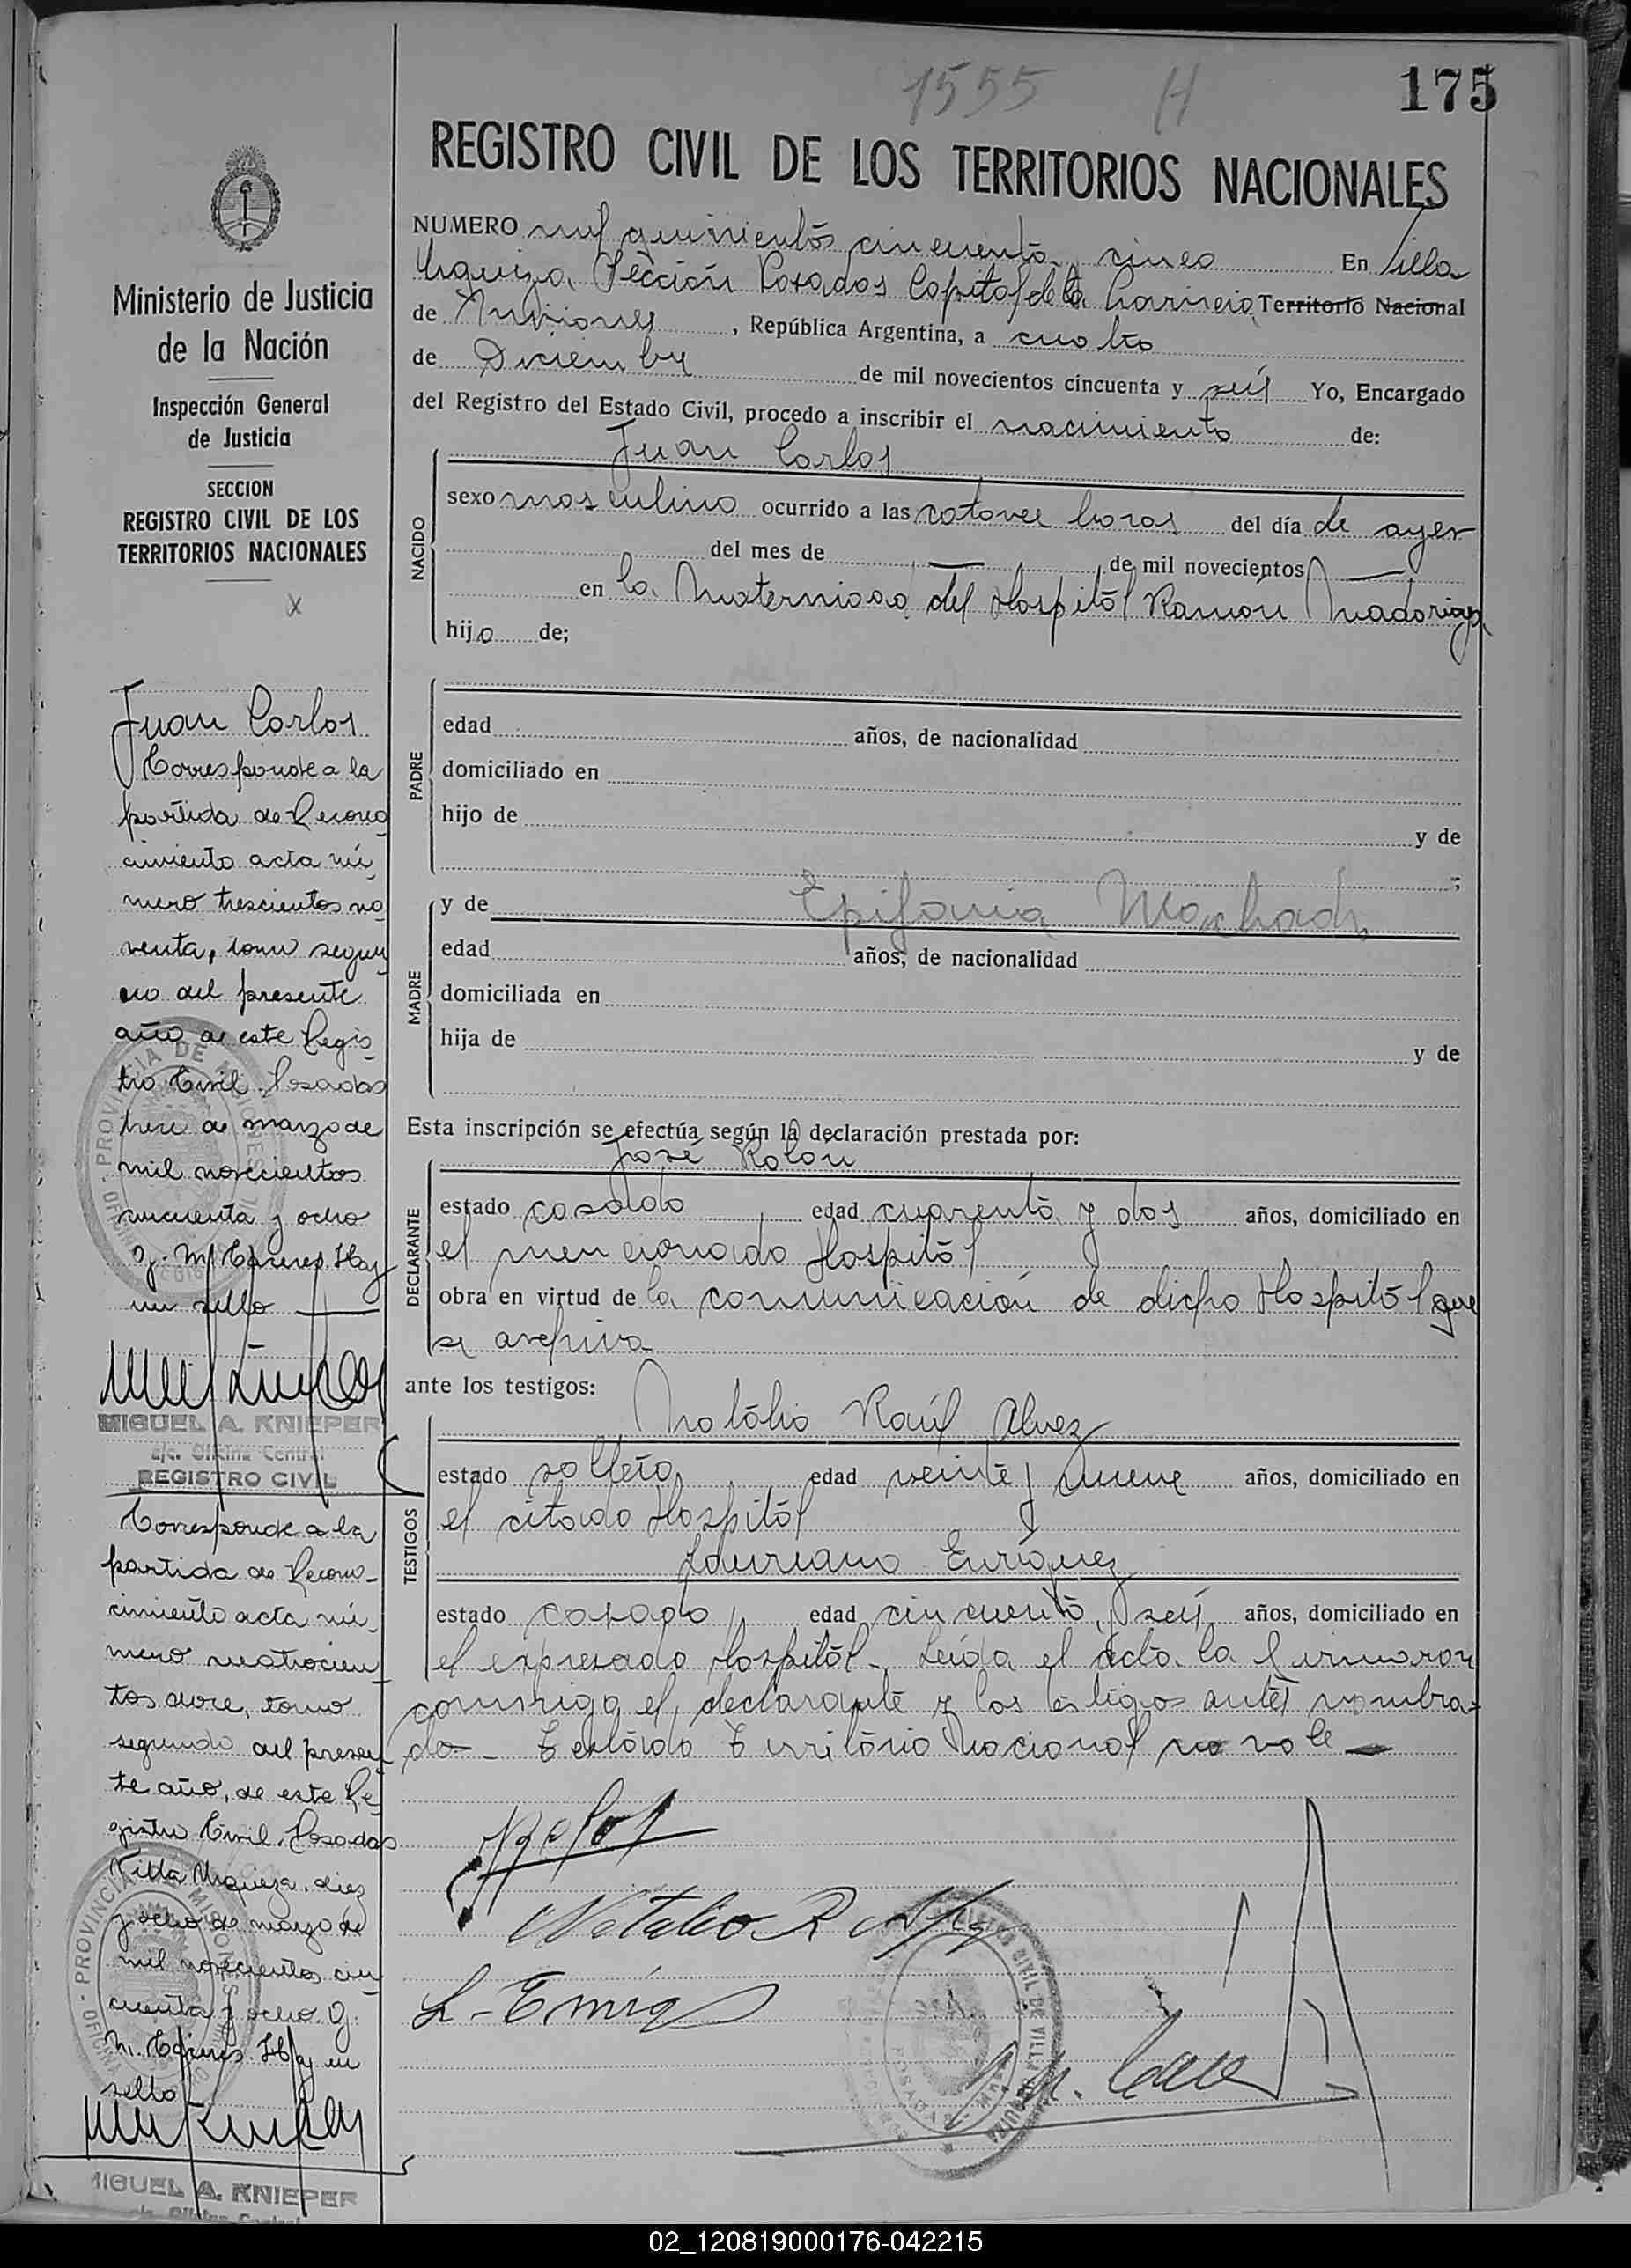 1555 H
175
REGISTRO CIVIL DE LOS TERRITORIOS NACIONALES
NUMERO mil quinientos cincuenta y cinco En Villa
Urquiza, Sección Posadas Capital de la Provincia, Territorio Nacional
de Misiones, República Argentina, a cuatro
de Diciembre de mil novecientos cincuenta y seis Yo, Encargado
del Registro del Estado Civil, procedo a inscribir el nacimiento de:
NACIDO
Juan Carlos
sexo masculino ocurrido a las catorce horas del día de ayer
del mes de — de mil novecientos —
en la Maternidad del Hospital Ramón Madariaga
hijo de;
PADRE
edad años, de nacionalidad
domiciliado en
hijo de y de
;
MADRE
y de Epifania Machado
edad años, de nacionalidad
domiciliada en
hija de y de
Esta inscripción se efectúa según la declaración prestada por:
DECLARANTE
José Rolón
estado casado edad cuarenta y dos años, domiciliado en
el mencionado Hospital
obra en virtud de la comunicación de dicho Hospital que
se archiva
ante los testigos:
TESTIGOS
Natalio Raúl Alvez
estado soltero edad veinte y nueve años, domiciliado en
el citado Hospital
Laureano Enríquez
estado casado edad cincuenta y seis años, domiciliado en
el expresado Hospital. Leída el acta la firmaron
conmigo el declarante y los testigos antes nombra-
do- Testado Territorio Nacional no vale —
Natalio R
L-
REGISTRO CIVIL DE VILLA URQUIZA
Ministerio de Justicia
de la Nación
Inspección General
de Justicia
SECCION
REGISTRO CIVIL DE LOS
TERRITORIOS NACIONALES
x
Juan Carlos
Corresponde a la
partida de Recono
cimiento acta nú
mero trescientos no
venta, tomo segun
do del presente
año de este Regis
tro Civil. Posadas
trece de marzo de
mil novecientos
cincuenta y ocho
Hay
un sello —
PROVINCIA DE MISIONES
MIGUEL A. KNIEPER
E/c. Oficina Central
REGISTRO CIVIL
Corresponde a la
partida de Recono-
cimiento acta nú
mero cuatrocien
tos doce, tomo
segundo del presen
te año, de este Re
gistro Civil. Posadas
Villa Urquiza. diez
y ocho de marzo de
mil novecientos cin
cuenta y ocho.
Hay un
sello
PROVINCIA DE MISIONES
MIGUEL A. KNIEPER
E/c. Oficina Central
02_120819000176-042215